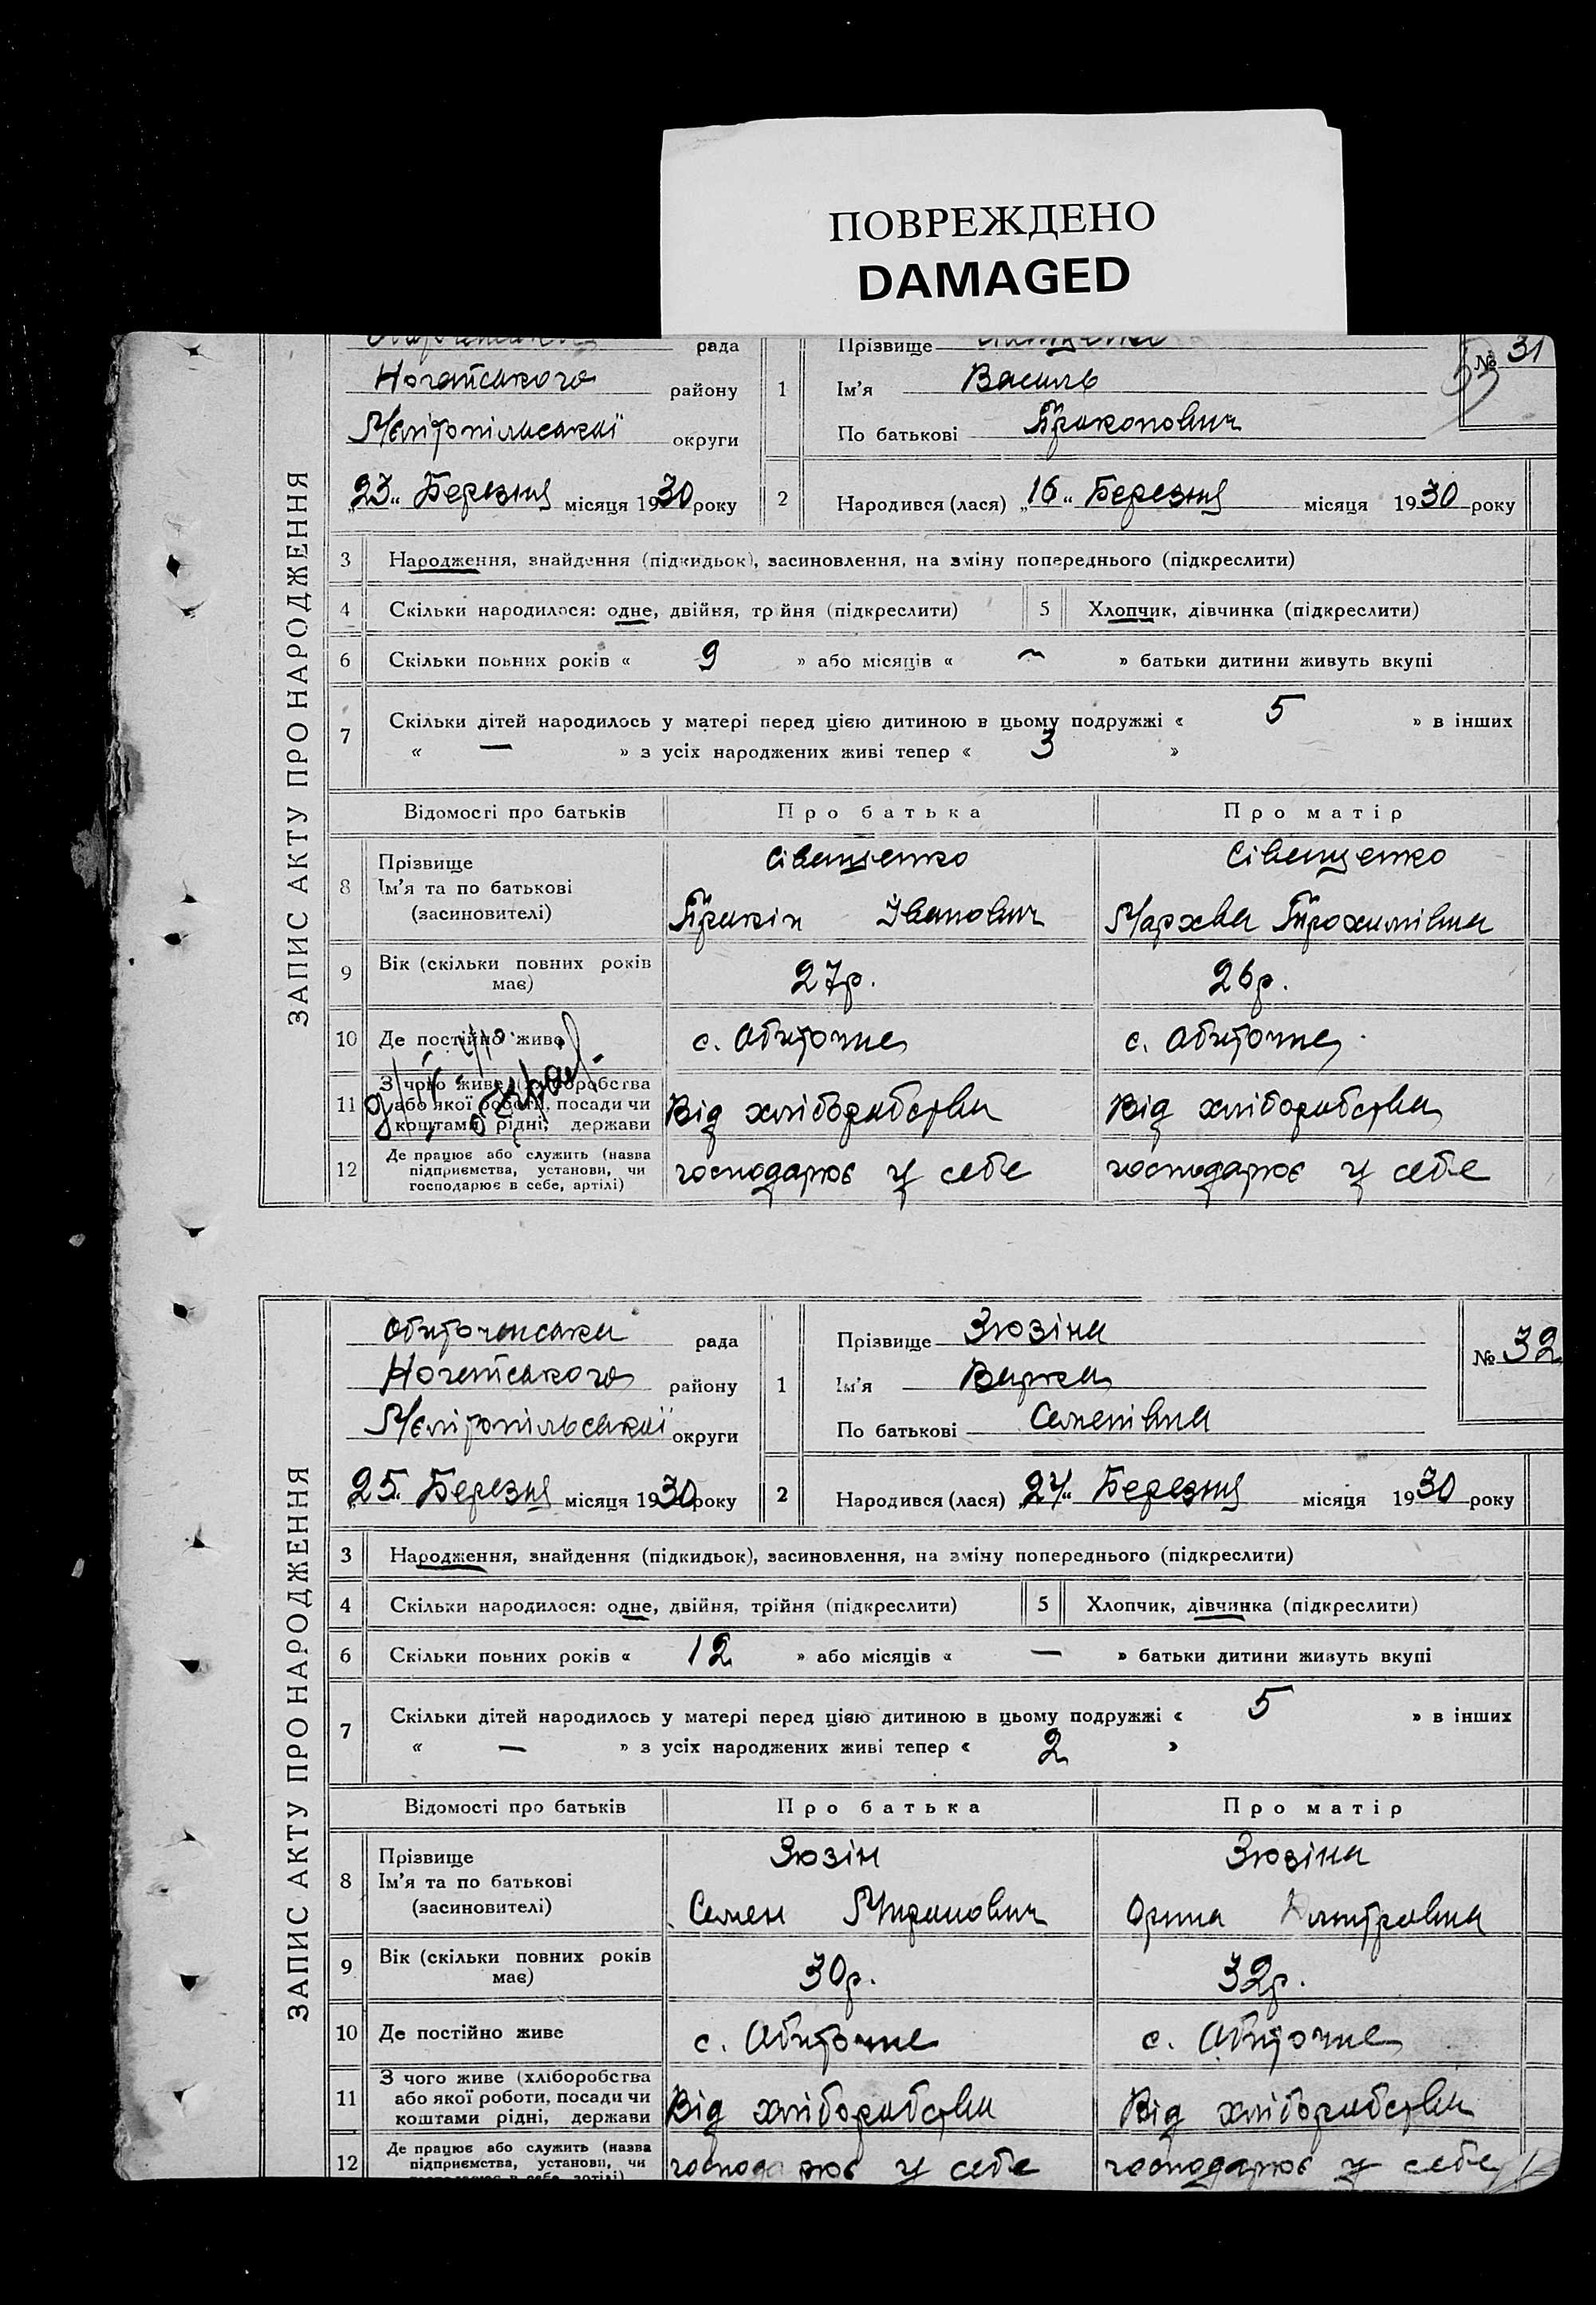 ПОВРЕЖДЕНО
DAMAGED
ЗАПИС АКТУ ПРО НАРОДЖЕННЯ
рада
Ногайського району
Меліпопільської округи
„23“ Березня місяця 1930 року
1 Прізвище
Ім'я Василь
По батькові Прокопович
№ 31
2 Народився (лася) „16“ Березня місяця 1930 року
3 Народження, знайдення (підкидьок), засиновлення, на зміну попереднього (підкреслити)
4 Скільки народилося: одне, двійня, трійня (підкреслити) 5 Хлопчик, дівчинка (підкреслити)
6 Скільки повних років « 9 » або місяців « — » батьки дитини живуть вкупі
7 Скільки дітей народилось у матері перед цією дитиною в цьому подружжі « 5 » в інших
« — » з усіх народжених живі тепер « 3 »
Відомості про батьків Про батька Про матір
8 Прізвище Сіващенко Сіващенко
Ім'я та по батькові
(засиновителі) Пракіп Іванович Мархва Трохимівна
9 Вік (скільки повних років має) 27р. 26р.
10 Де постійно живе с. Обиточне с. Обиточне
11 З чого живе (хліборобства
або якої роботи, посади чи
коштами рідні, держави Від хліборобства Від хліборобства
12 Де працює або служить (назва
підприємства, установи, чи
господарює в себе, артілі) господарює у себе господарює у себе
ЗАПИС АКТУ ПРО НАРОДЖЕННЯ
Обиточанська рада
Ногайського району
Меліпопільської округи
„25“ Березня місяця 1930 року
1 Прізвище Зюзіна
Ім'я Варка
По батькові Семенівна
№ 32
2 Народився (лася) „24“ Березня місяця 1930 року
3 Народження, знайдення (підкидьок), засиновлення, на зміну попереднього (підкреслити)
4 Скільки народилося: одне, двійня, трійня (підкреслити) 5 Хлопчик, дівчинка (підкреслити)
6 Скільки повних років « 12 » або місяців « — » батьки дитини живуть вкупі
7 Скільки дітей народилось у матері перед цією дитиною в цьому подружжі « 5 » в інших
« — » з усіх народжених живі тепер « 2 »
Відомості про батьків Про батька Про матір
8 Прізвище Зюзін Зюзіна
Ім'я та по батькові
(засиновителі) Семен Миранович Орина Дмитровна
9 Вік (скільки повних років має) 30р. 32р.
10 Де постійно живе с. Обиточне с. Обиточне
11 З чого живе (хліборобства
або якої роботи, посади чи
коштами рідні, держави Від хліборобства Від хліборобства
12 Де працює або служить (назва
підприємства, установи, чи
господарює в себе, артілі) господарює у себе господарює у себе